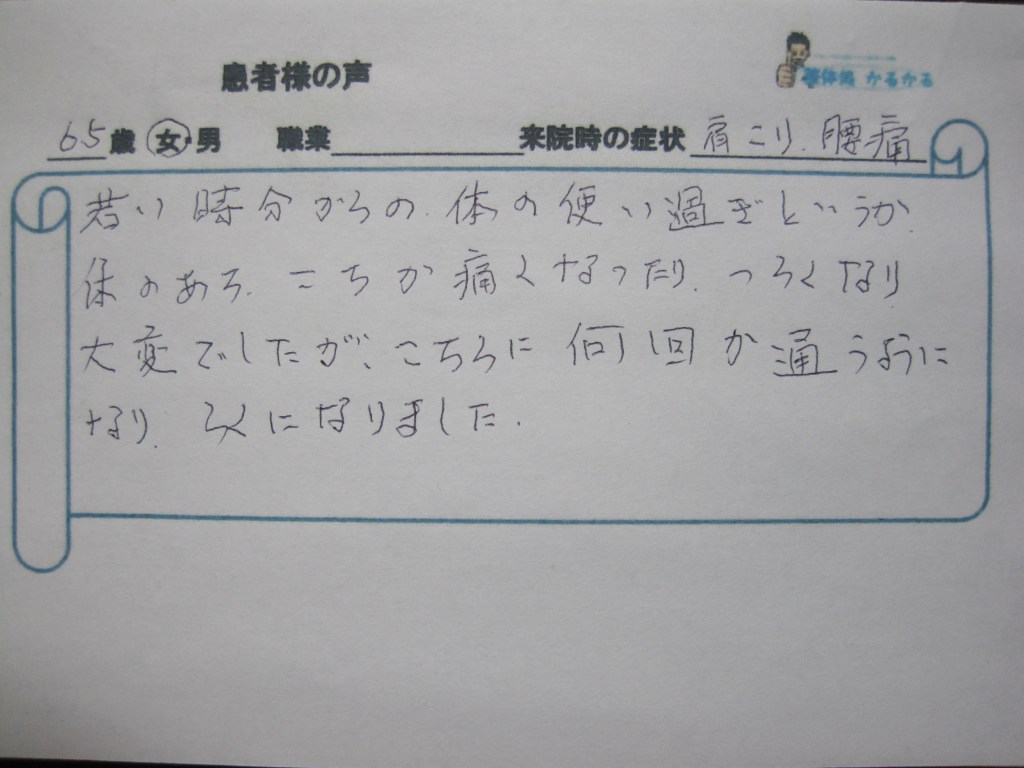 患者様の声
整体院 かるかる
65歳 女・男 職業 来院時の症状 肩こり、腰痛
若い時分からの、体の使い過ぎというか、
体のあち、こちが痛くなったり、つらくなり
大変でしたが、こちらに何回か通うように
なり、らくになりました。